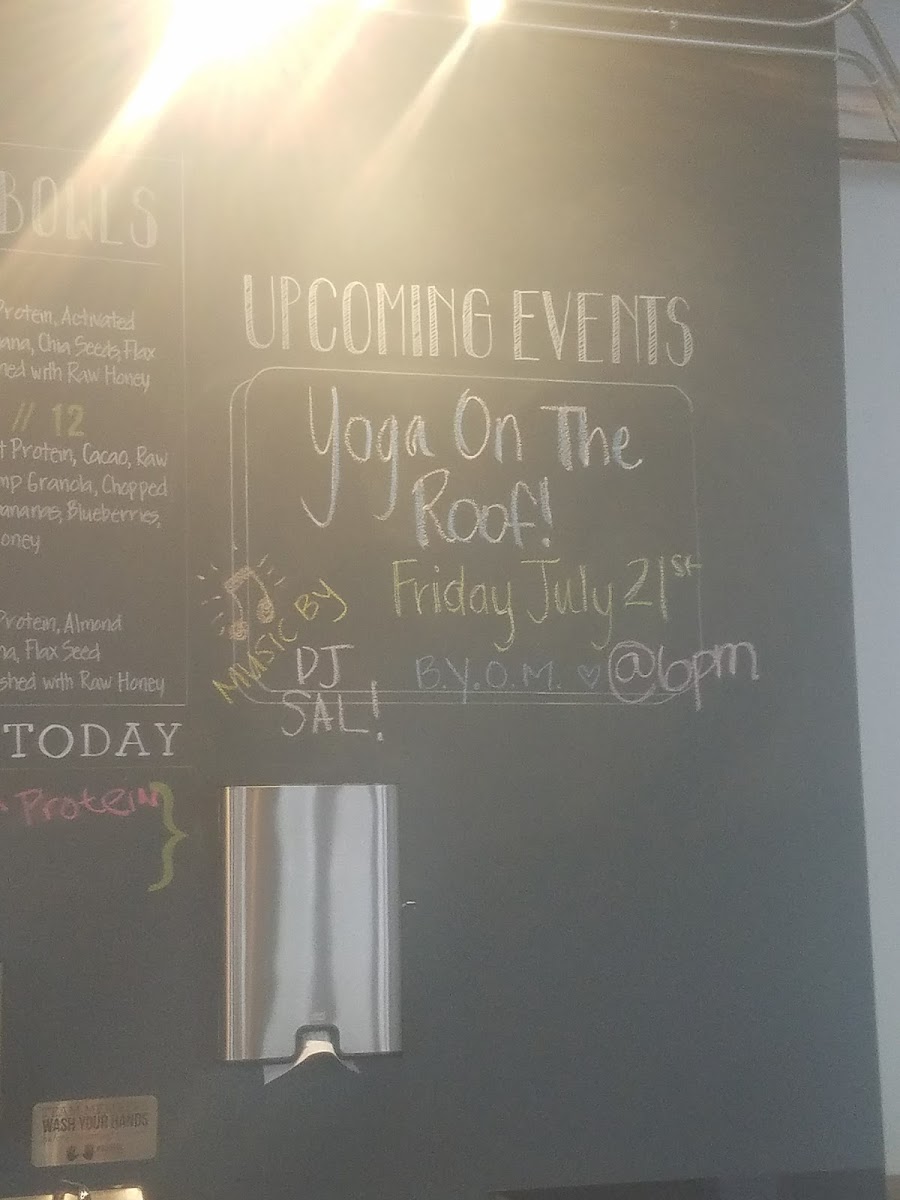 BOWLS
Protein, Activated
ana, Chia Seeds, Flax
hed with Raw Honey
// 12
t Protein, Cacao, Raw
mp Granola, Chopped
ananas, Blueberries,
oney
Protein, Almond
na, Flax Seed
shed with Raw Honey
TODAY
Protein
UPCOMING EVENTS
Yoga On The
Roof!
Friday July 21st
@6pm
B.Y.O.M.
MUSIC BY
DJ
SAL!
WASH YOUR HANDS